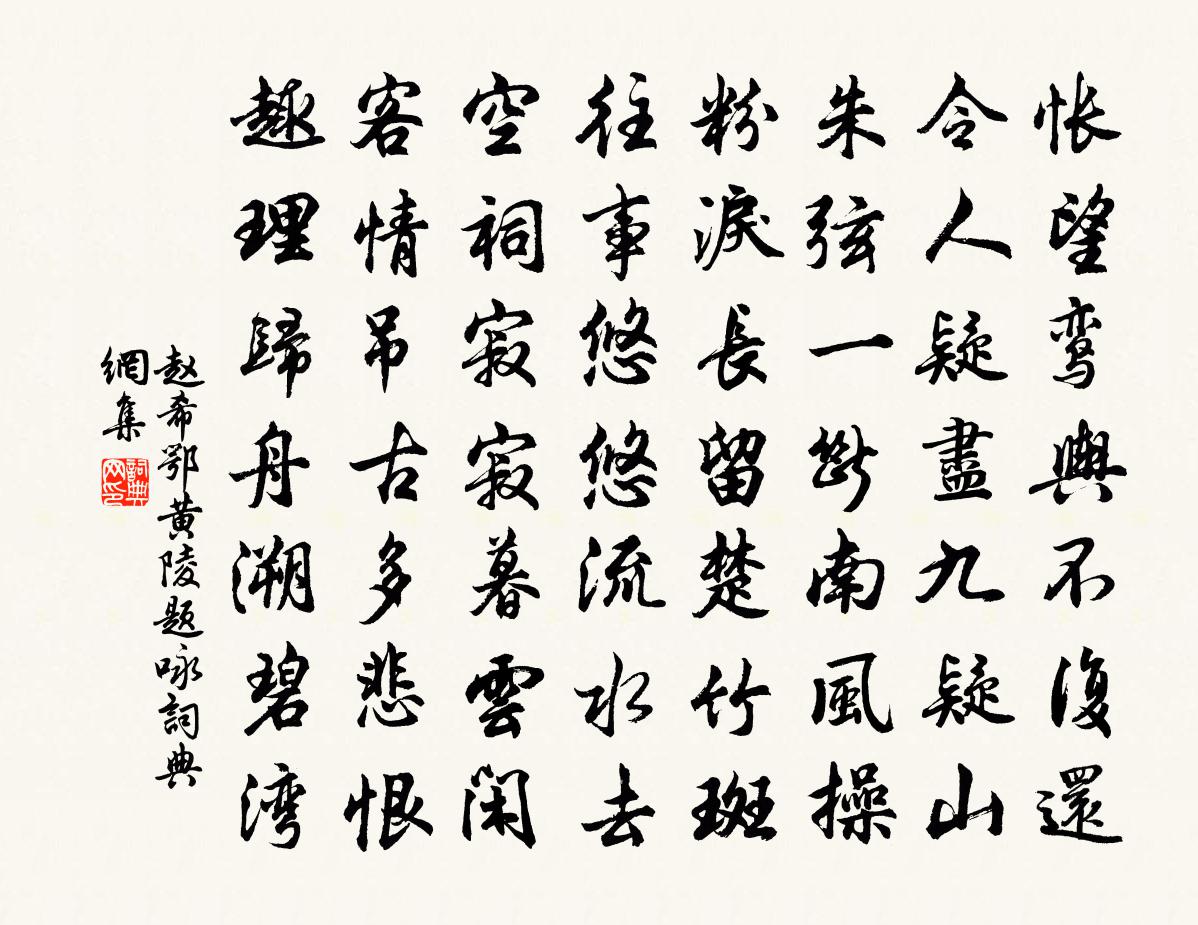 怅望鸾輿不復還
令人疑盡九疑山
朱弦一斷南風操
粉淚長留楚竹斑
往事悠悠流水去
空祠寂寂暮雲閑
客情吊古多悲恨
趣理歸舟溯碧湾
赵希鄂黄陵题咏詞典
網集
詞典
网印